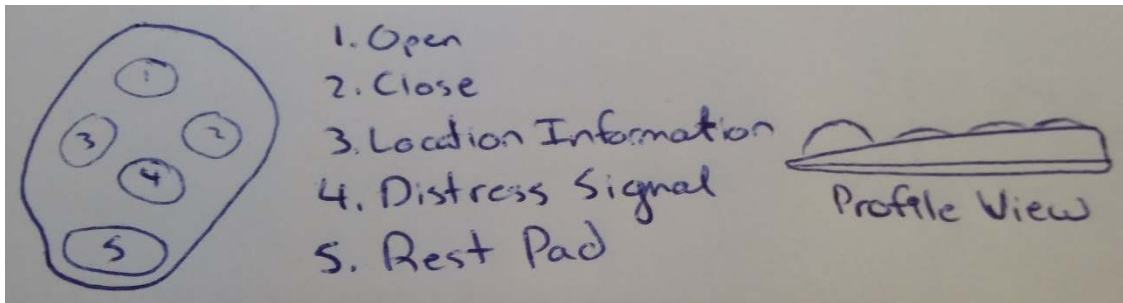 1
3
2
4
5
1. Open
2. Close
3. Location Information
4. Distress Signal
5. Rest Pad
Profile View